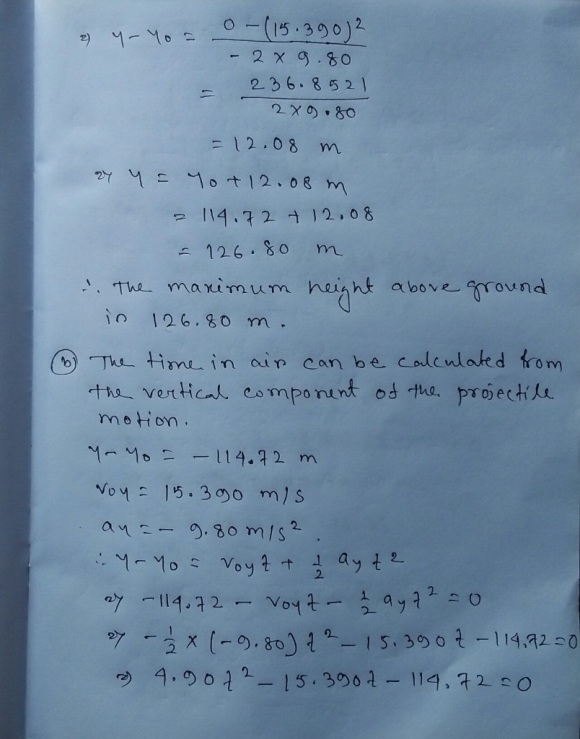 ⇒ y - y0 = 0 - (15.390)² / - 2 × 9.80
= 236.8521 / 2 × 9.80
= 12.08 m
⇒ y = y0 + 12.08 m
= 114.72 + 12.08
= 126.80 m
∴ The maximum height above ground
is 126.80 m.
(b) The time in air can be calculated from
the vertical component of the projectile
motion.
y - y0 = - 114.72 m
v0y = 15.390 m/s
ay = - 9.80 m/s².
∴ y - y0 = v0y t + 1/2 ay t²
⇒ -114.72 - v0y t - 1/2 ay t² = 0
⇒ - 1/2 × (-9.80) t² - 15.390 t - 114.72 = 0
⇒ 4.90 t² - 15.390 t - 114.72 = 0